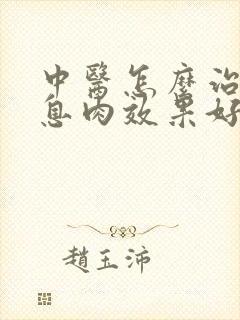 中醫怎麼治
息肉效果好
趙玉沛